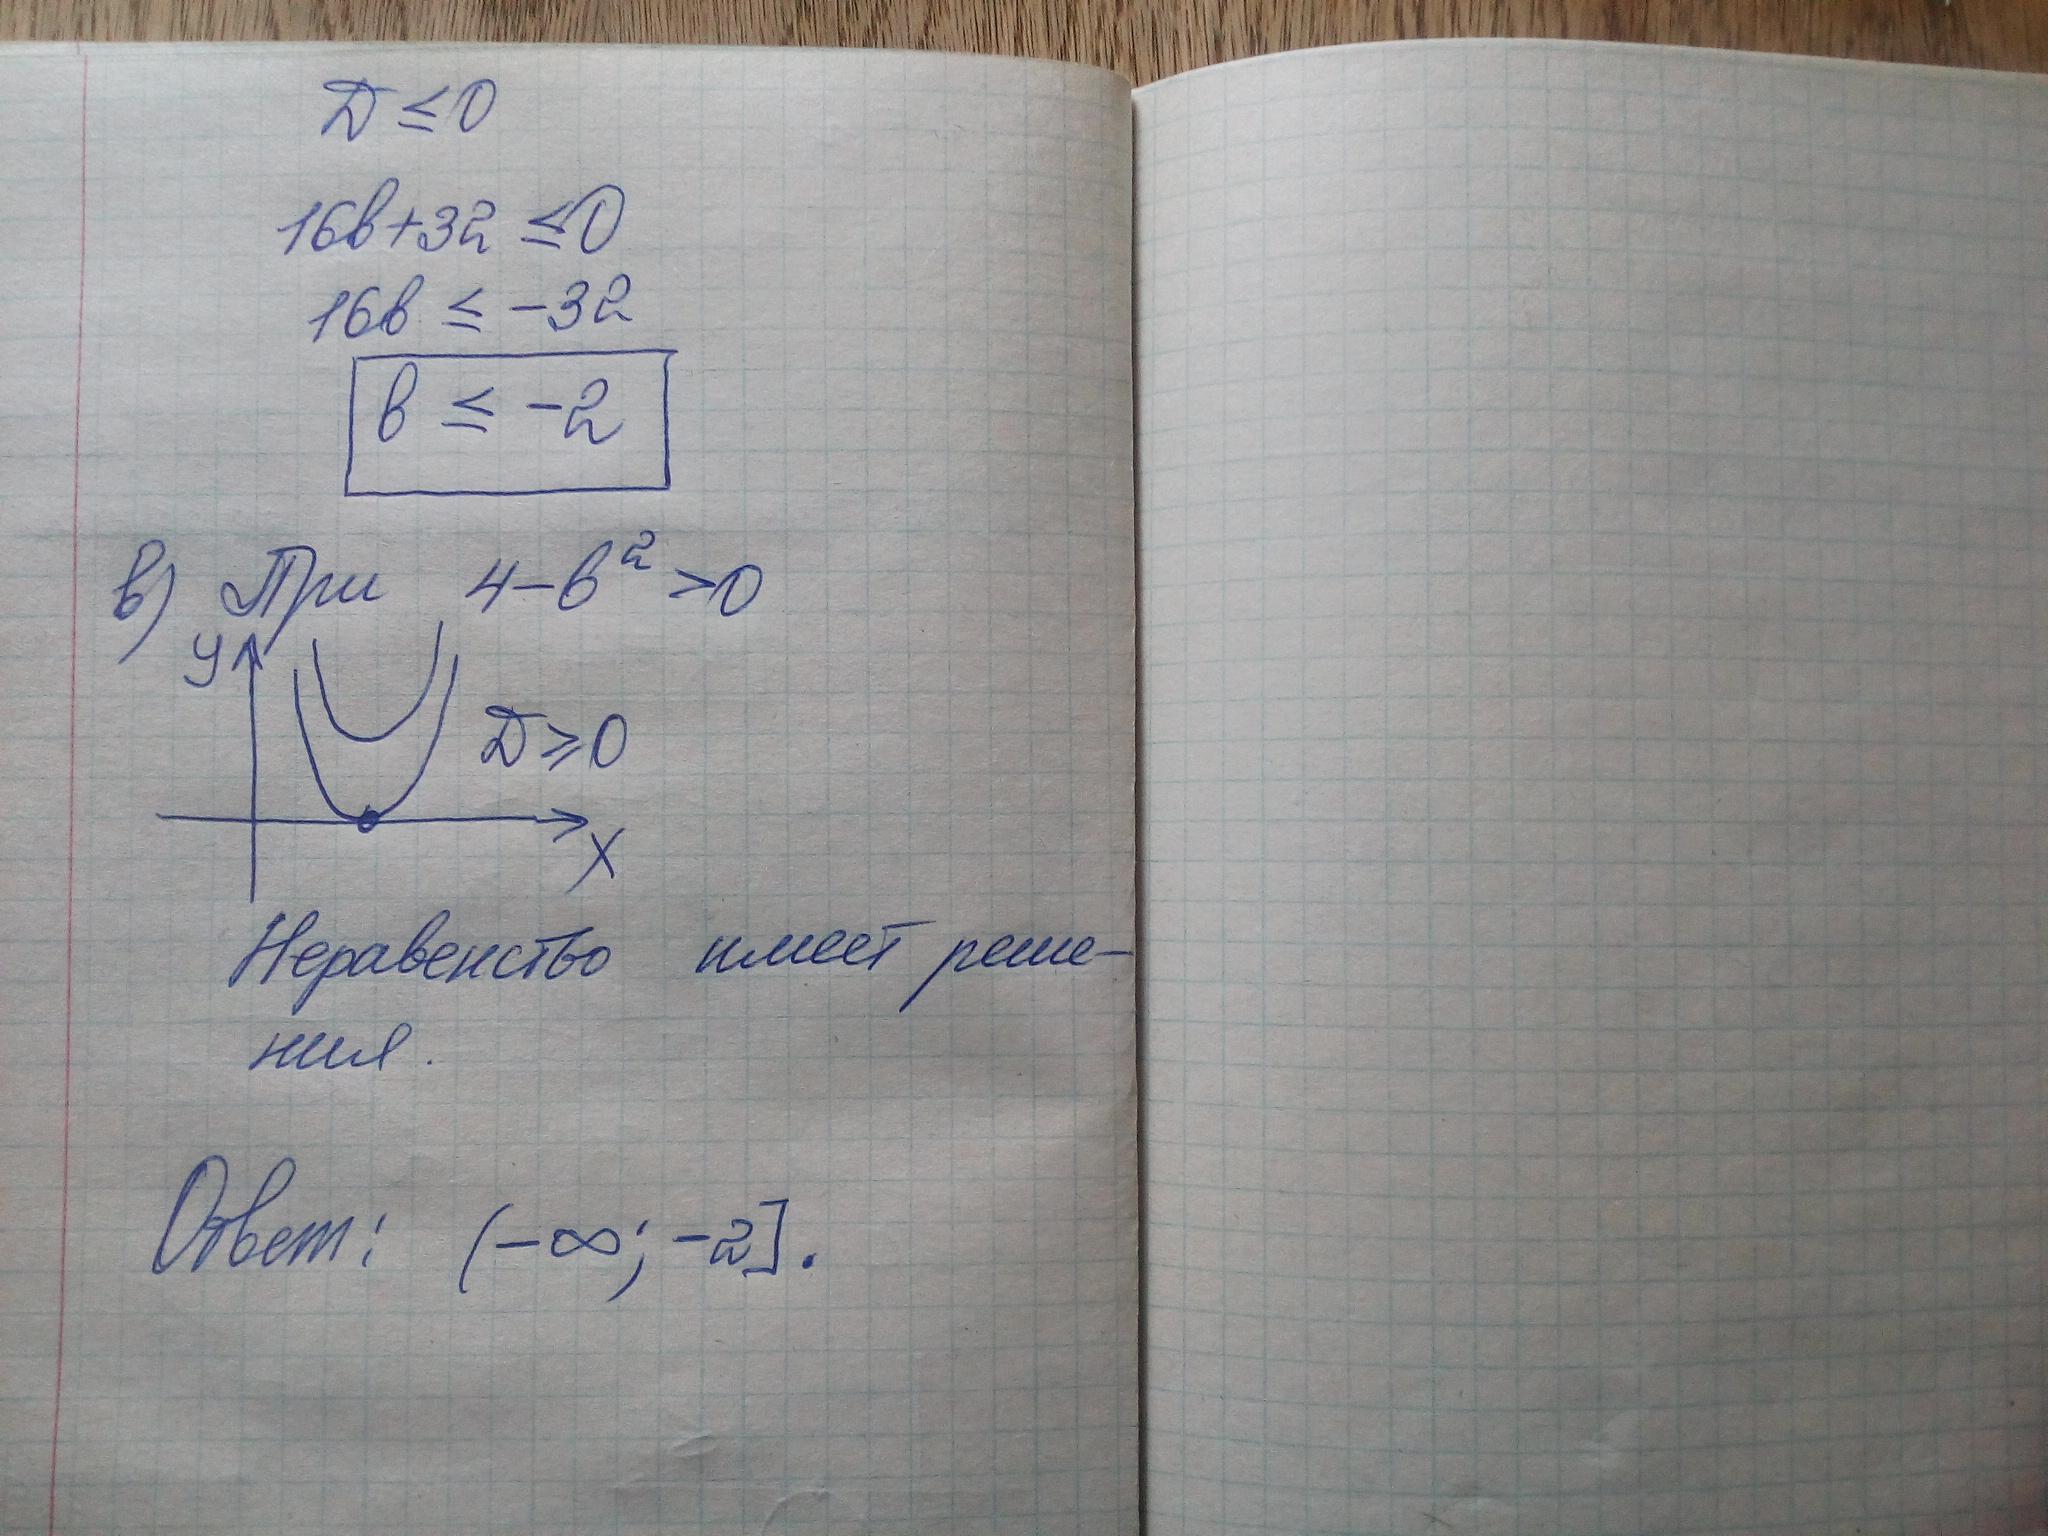 D ≤ 0
16в+32 ≤ 0
16в ≤ -32
в ≤ -2
в) При 4-в² > 0
у
D ≥ 0
х
Неравенство имеет реше-
ния.
Ответ: (-∞; -2].